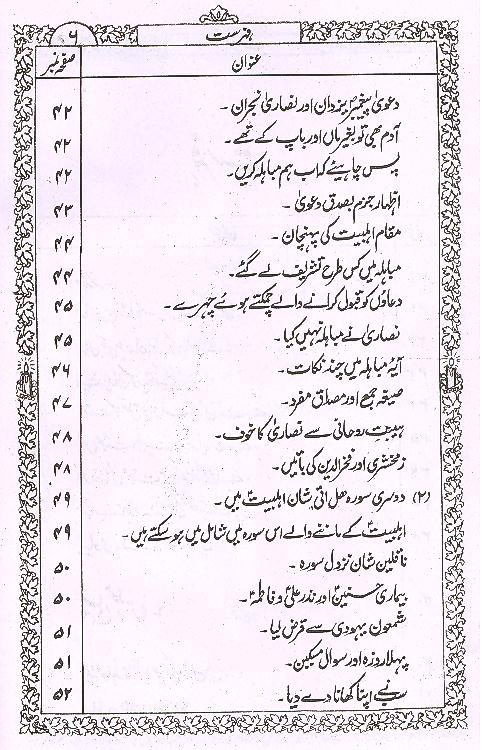 فہرست ۶
عنوان صفحہ نمبر
دعویٰ پیغمبرؐ یزدان اور نصاریٰ نجران ۔ ۴۲
آدم بھی تو بغیر ماں اور باپ کے تھے ۔ ۴۲
پس چاہیئے کہ اب ہم مباہلہ کریں ۔ ۴۲
اظہار جزم بصدق دعویٰ ۔ ۴۳
مقام اہلبیت کی پہنچان ۔ ۴۴
مباہلہ میں کس طرح تشریف لے گئے ۔ ۴۴
دعاؤں کو قبول کرانے والے چمکتے ہوئے چہرے ۔ ۴۵
نصاریٰ نے مباہلہ نہیں کیا ۔ ۴۵
آیۂ مباہلہ میں چند نکات ۔ ۴۶
صیغہ جمع اور مصداق مفرد ۔ ۴۷
ہیبت روحانی سے نصاریٰ کا خوف ۔ ۴۸
زمخشری اور فخر الدین کی باتیں ۔ ۴۸
(۲) دوسری سورہ ھل اتیٰ بشان اہلبیتؑ ہیں ۔ ۴۹
اہلبیتؑ کے ماننے والے اس سورہ میں شامل ہو سکتے ہیں ۔ ۴۹
ناقلین شان نزول سورہ ۔ ۵۰
بیماری حسنینؑ اور نذر علیؑ و فاطمہؑ ۔ ۵۰
شمعون یہودی سے قرض لیا ۔ ۵۱
پہلا روزہ اور سوال مسکین ۔ ۵۱
سب نے اپنا کھانا دے دیا ۔ ۵۲